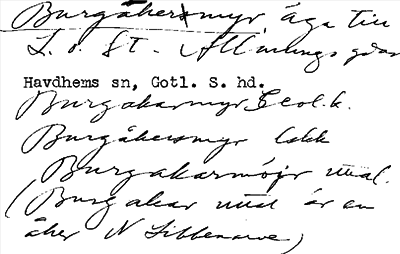 Burgåkersmyr, äga till
L. o. St. Allmungs gdar
Havdhems sn, Gotl. S. hd.
Burgakarmyr Geol. k.
Burgåkersmyr Ekk
Burgakarmöjr uttal.
(Burgakar uttal är en
åker N Sibbenarve)